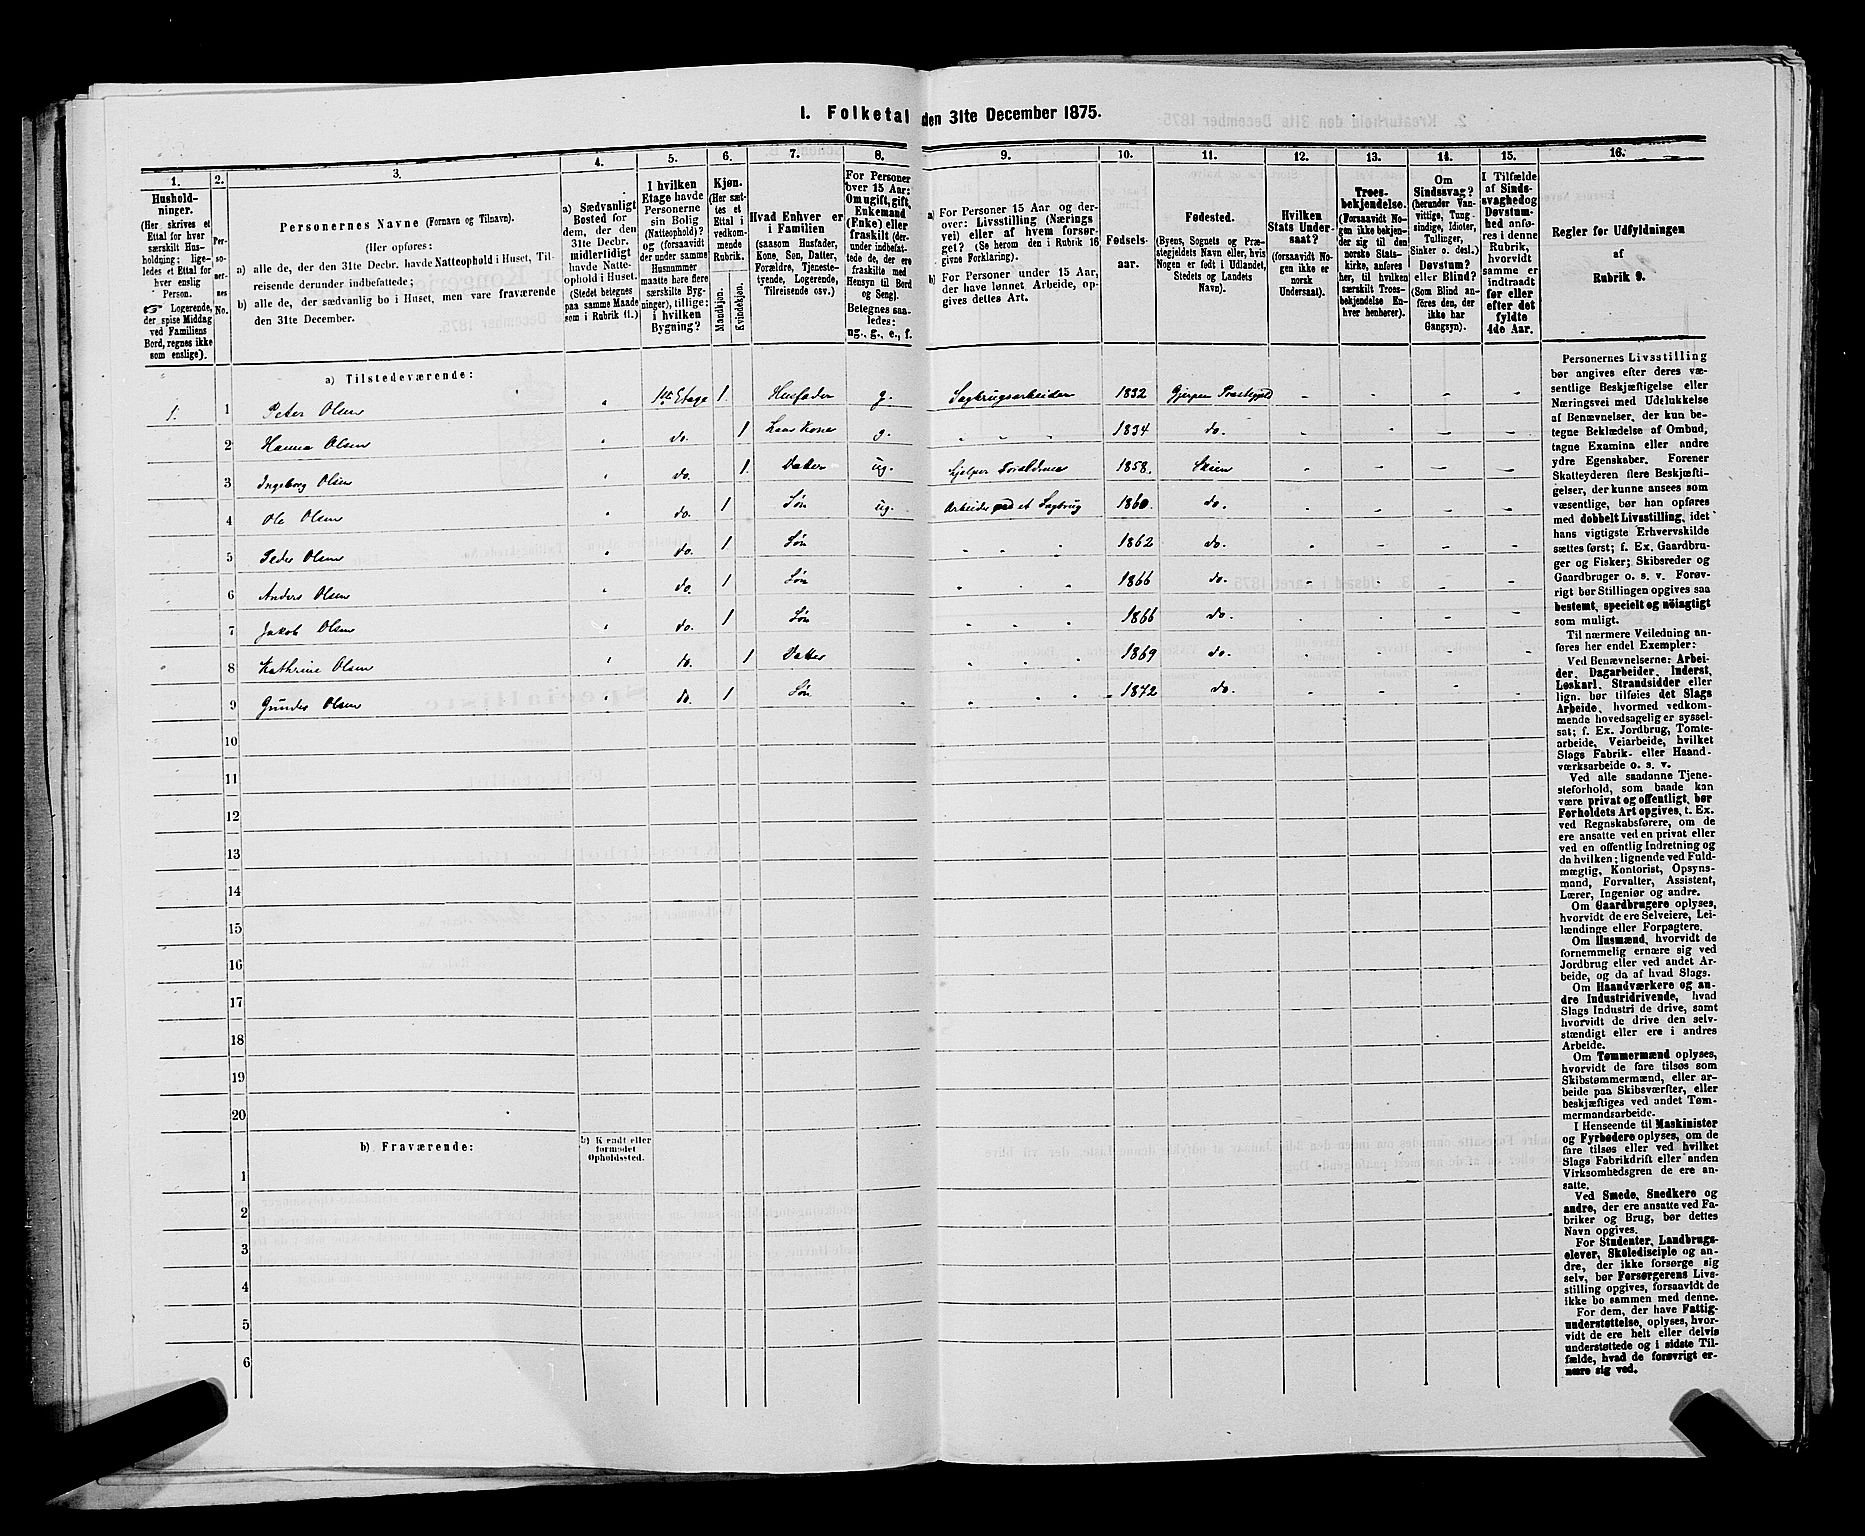 I. Folketal den 31te December 1875.
1. 2. 3. 4. 5. 6. 7. 8. 9. 10. 11. 12. 13. 14. 15. 16.
Hushold-
ninger.
(Her skrives et
Ettal for hver
særskilt Hus-
holdning; lige-
ledes et Ettal for
hver enslig
Person.
☞ Logerende,
der spise Middag
ved Familiens
Bord, regnes ikke
som enslige).
Per-
so-
ner-
nes
No.
Personernes Navne (Fornavn og Tilnavn).
(Her opføres:
a) alle de, der den 31te Decbr. havde Natteophold i Huset, Til-
reisende derunder indbefattede;
b) alle de, der sædvanlig bo i Huset, men vare fraværende
den 31te December.
a) Sædvanligt
Bosted for
dem, der den
31te Decbr.
midlertidigt
havde Natte-
ophold i Huset.
(Stedet betegnes
paa samme Maade
som i Rubrik 11.)
I hvilken
Etage havde
Personerne
sin Bolig
(Natteophold)?
og (forsaavidt
der under samme
Husnummer
maatte høre flere
særskilte Byg-
ninger), tillige:
i hvilken
Bygning?
Kjøn.
(Her sæt-
tes et
Ettal i
vedkom-
mende
Rubrik.
Mandkjøn.
Kvindekjøn.
Hvad Enhver er
i Familien
(saasom Husfader,
Kone, Søn, Datter,
Forældre, Tjeneste-
tyende, Logerende,
Tilreisende osv.)
For Personer
over 15 Aar:
Om ugift, gift,
Enkemand
(Enke) eller
fraskilt (der-
under indbefat-
tede de, der ere
fraskilte med
Hensyn til Bord
og Seng).
Betegnes saa-
ledes:
ug., g., e., f.
a) For Personer 15 Aar og der-
over: Livsstilling (Nærings
vei) eller af hvem forsør-
get? (Se herom den i Rubrik 16
givne Forklaring).
b) For Personer under 15 Aar,
der have lønnet Arbeide, op-
gives dettes Art.
Fødsels-
aar.
Fødested.
(Byens, Sognets og Præ-
stegjeldets Navn eller, hvis
Nogen er født i Udlandet,
Stedets og Landets
Navn).
Hvilken
Stats Under-
saat?
(forsaavidt No-
gen ikke er
norsk
Undersaat).
Troes-
bekjendelse.
(Forsaavidt No-
gen ikke bekjen-
der sig til den
norske Stats-
kirke, anføres
her, til hvilken
særskilt Troes-
bekjendelse En-
hver henhører).
Om
Sindssvag?
(herunder Van-
vittige, Tung-
sindige, Idioter,
Tullinger,
Sinker o. desl.)
Døvstum?
eller Blind?
(Som Blind an-
føres den, der
ikke har
Gangsyn).
I Tilfælde
af Sinds-
svaghed og
Døvstum-
hed anfø-
res i denne
Rubrik,
hvorvidt
samme er
indtraadt
før eller
efter det
fyldte
4de Aar.
Regler før Udfyldningen
af
Rubrik 9.
a) Tilstedeværende:
1. 1 Peter Olsen " 1ste Etage 1. Husfader g. Sagbrugsarbeider 1832 Gjerpen Præstegjeld
2 Hanna Olsen " do. 1 hans Kone g. " " " 1834 do.
3 Ingeborg Olsen " do. 1. Datter ug. hjelper Forældrene 1858. Skien
4 Ole Olsen " do. 1 Søn ug. Arbeider ved et Sagbrug 1860. do.
5 Peder Olsen " do. 1 Søn " " " 1862 do.
6 Anders Olsen " do. 1 Søn " " " 1866 do.
7 Jakob Olsen " do. 1 Søn " " " 1866 do.
8 Kathrine Olsen " do. 1 Datter " " " 1869 do.
9 Gunder Olsen " do. 1 Søn " " " 1872 do.
10
11
12
13
14
15
16
17
18
19
20
b) Fraværende:
b) Kjendt eller
formodet
Opholdssted.
1
2
3
4
5
6
Personernes Livsstilling
bør angives efter deres væ-
sentlige Beskjæftigelse eller
Næringsvei med Udelukkelse
af Benævnelser, der kun be-
tegne Beklædelse af Ombud,
tagne Examina eller andre
ydre Egenskaber. Forener
Skatteyderen flere Beskjæfti-
gelser, der kunne ansees som
væsentlige, bør han opføres
med dobbelt Livsstilling, idet
hans vigtigste Erhvervskilde
sættes først; f. Ex. Gaardbru-
ger og Fisker; Skibsreder og
Gaardbruger o. s. v. Forøv-
rigt bør Stillingen opgives saa
bestemt, specielt og nöiagtigt
som muligt.
Til nærmere Veiledning an-
føres her endel Exempler:
Ved Benævnelserne: Arbei-
der, Dagarbeider, Inderst,
Løskarl, Strandsidder eller
lign. bør tilføies det Slags
Arbeide, hvormed vedkom-
mende hovedsagelig er syssel-
sat; f. Ex. Jordbrug, Tomte-
arbeide, Veiarbeide, hvilket
Slags Fabrik- eller Haand-
værksarbeide o. s. v.
Ved alle saadanne Tjene-
steforhold, som baade kan
være privat og offentligt, bør
Forholdets Art opgives, t. Ex.
ved Regnskabsførere, om de
ere ansatte ved en privat eller
ved en offentlig Indretning og
da hvilken; lignende ved Fuld-
mægtig, Kontorist, Opsyns-
mand, Forvalter, Assistent,
Lærer, Ingeniør og andre.
Om Gaardbrugere oplyses,
hvorvidt de ere Selveiere, Lei-
lændinge eller Forpagtere.
Om Husmænd, hvorvidt de
fornemmelig ernære sig ved
Jordbrug eller ved andet Ar-
beide, og da af hvad Slags.
Om Haandværkere og an-
dre Industridrivende, hvad
Slags Industri de drive, samt
hvorvidt de drive den selv-
stændigt eller ere i andres
Arbeide.
Om Tømmermænd oplyses,
hvorvidt de fare tilsøs som
Skibstømmermænd, eller ar-
beide paa Skibsværfter, eller
beskjæftiges ved andet Tøm-
mermandsarbeide.
I Henseende til Maskinister
og Fyrbødere oplyses, om de
fare tilsøs eller ved hvilket
Slags Fabrikdrift eller anden
Virksomhedsgren de ere an-
satte.
Ved Smede, Snedkere og
andre, der ere ansatte ved Fa-
briker og Brug, bør dettes
Navn opgives.
For Studenter, Landbrugs-
elever, Skoledisciple og an-
dre, der ikke forsørge sig
selv, bør Forsørgerens Livs-
stilling opgives, forsaavidt de
ikke bo sammen med denne.
For dem, der have Fattig-
understøttelse, oplyses, hvor-
vidt de ere helt eller delvis
understøttede og i sidste Til-
fælde, hvad de forøvrigt er-
nære sig ved.